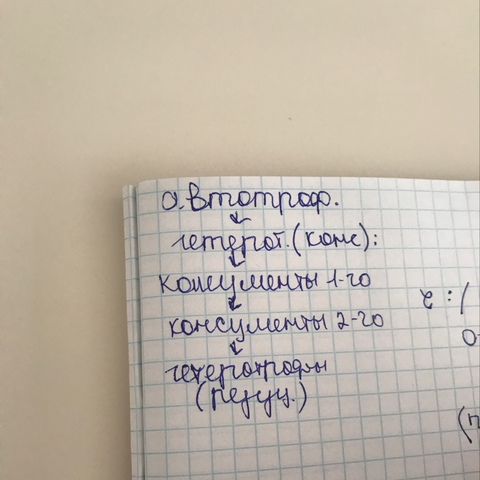 автотроф.
гетерот. (конс):
консументы 1-го
консументы 2-го
гетеротрофы
(редуц.)